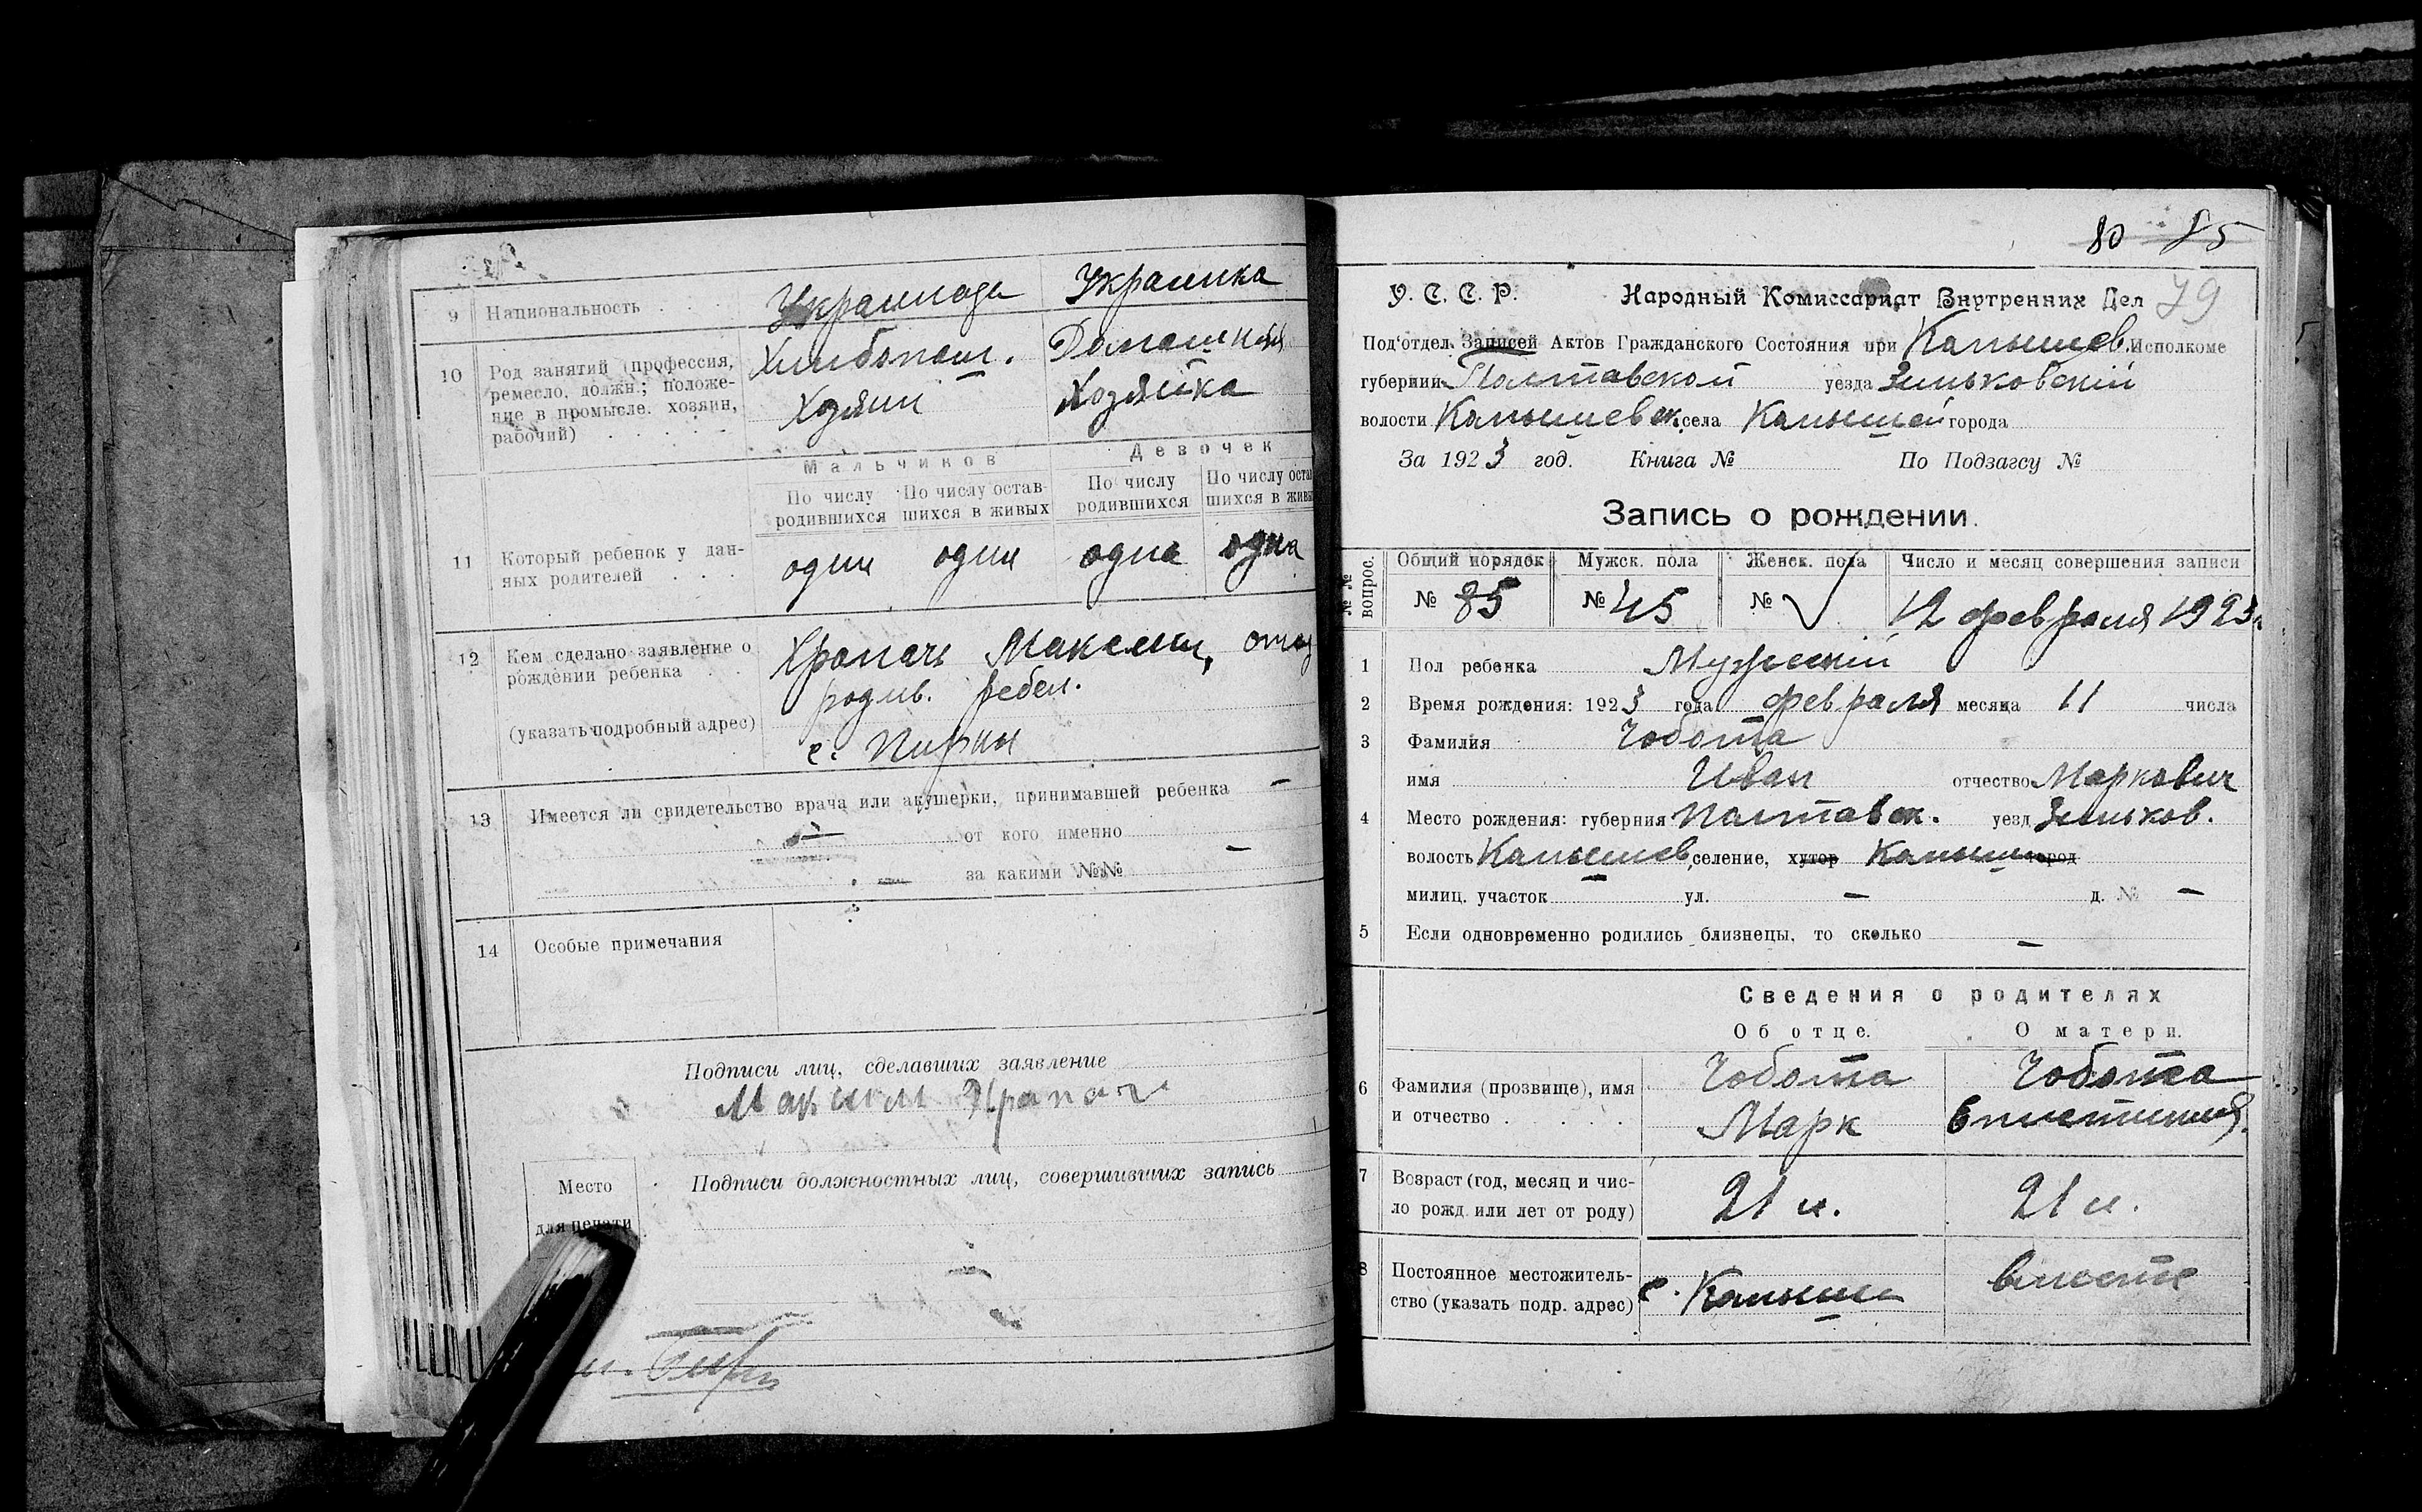 9 Национальность Украинец Украинка
10 Род занятий (профессия, ремесло, должн.; положение в промысле. хозяин, рабочий)
Хлибопаш. Домашняя
Хозяин Хозяйка
Мальчиков Девочек
По числу родившихся По числу оставшихся в живых По числу родившихся По числу оставшихся в живых
11 Который ребенок у данных родителей один один одна одна
12 Кем сделано заявление о рождении ребенка
Храпачь Максим, отец
родив. ребен.
(указать подробный адрес)
с. Пирки
13 Имеется ли свидетельство врача или акушерки, принимавшей ребенка —
— от кого именно —
— за какими №№
14 Особые примечания
Подписи лиц, сделавших заявление
Максим Храпач
Место
для печати
Подписи должностных лиц, совершивших запись
80 85
79
У. С. С. Р. Народный Комиссариат Внутренних Дел
Под'отдел Записей Актов Гражданского Состояния при Камышев. Исполкоме
губернии Полтавской уезда Зиньковский
волости Камышевск. села Камышей города
За 1923 год. Книга № По Подзагсу №
Запись о рождении.
№№ вопрос. Общий порядок Мужск. пола Женск. пола Число и месяц совершения записи
№ 85 № 45 № 12 февраля 1923 г.
1 Пол ребенка Мужский
2 Время рождения: 1923 года февраля месяца 11 числа
3 Фамилия Чобота
имя Иван отчество Маркович
4 Место рождения: губерния Полтавск. уезд Зиньков.
волость Камышев. селение, хутор Камыши город
милиц. участок — ул. — д. № —
5 Если одновременно родились близнецы, то сколько —
Сведения о родителях
Об отце. О матери.
6 Фамилия (прозвище), имя и отчество
Чобота Чобота
Марк Епистимия
7 Возраст (год, месяц и число рожд или лет от роду)
21 л. 21 л.
8 Постоянное местожительство (указать подр. адрес)
с. Камыши вместе